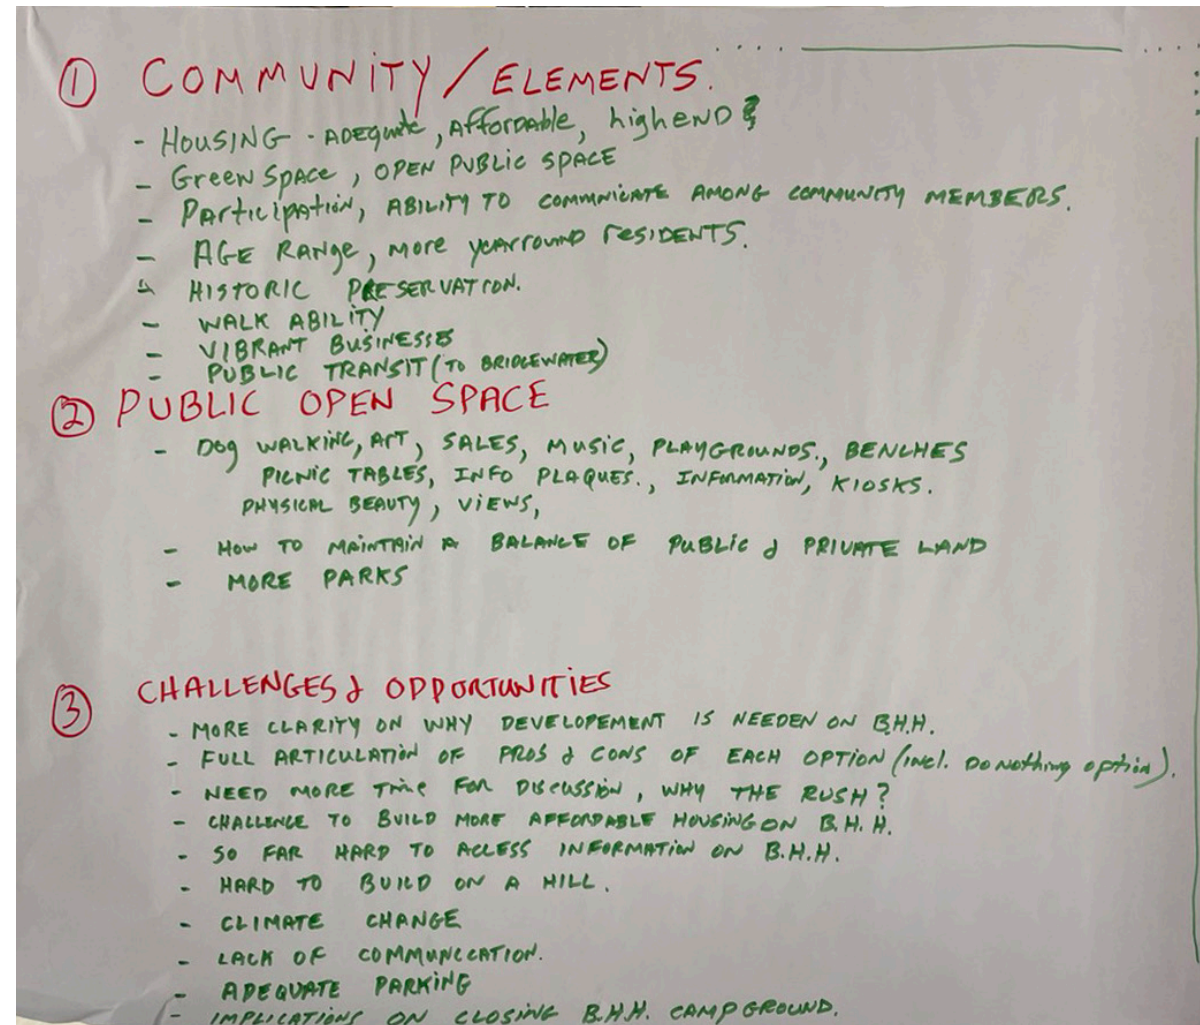 ① COMMUNITY / ELEMENTS.
- HOUSING - ADEQUATE, AFFORDABLE, highEND
- Green SPACE, OPEN PUBLIC SPACE
- PARTICIPATION, ABILITY TO COMMUNICATE AMONG COMMUNITY MEMBERS.
- AGE RANGE, more yearround resIDENTS.
- HISTORIC PRESERVATION.
- WALK ABILITY
- VIBRANT BUSINESSES
- PUBLIC TRANSIT (TO BRIDGEWATER)
② PUBLIC OPEN SPACE
- Dog WALKING, ART, SALES, MUSIC, PLAYGROUNDS., BENCHES
PICNIC TABLES, INFO PLAQUES., INFORMATION, KIOSKS.
PHYSICAL BEAUTY, VIEWS,
- HOW TO MAINTAIN A BALANCE OF PUBLIC & PRIVATE LAND
- MORE PARKS
③ CHALLENGES & OPPORTUNITIES
- MORE CLARITY ON WHY DEVELOPEMENT IS NEEDEN ON B.H.H.
- FULL ARTICULATION OF PROS & CONS OF EACH OPTION (incl. DO NOthing option).
- NEED MORE TIME FOR DISCUSSION, WHY THE RUSH?
- CHALLENGE TO BUILD MORE AFFORDABLE HOUSING ON B.H.H.
- SO FAR HARD TO ACCESS INFORMATION ON B.H.H.
- HARD TO BUILD ON A HILL.
- CLIMATE CHANGE
- LACK OF COMMUNICATION.
- ADEQUATE PARKING
- IMPLICATIONS ON CLOSING B.H.H. CAMPGROUND.